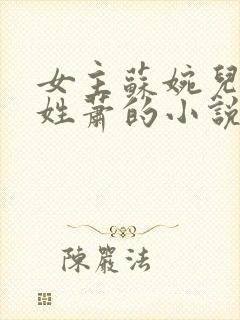 女主蘇婉兒
姓蕭的小說
陳嚴法